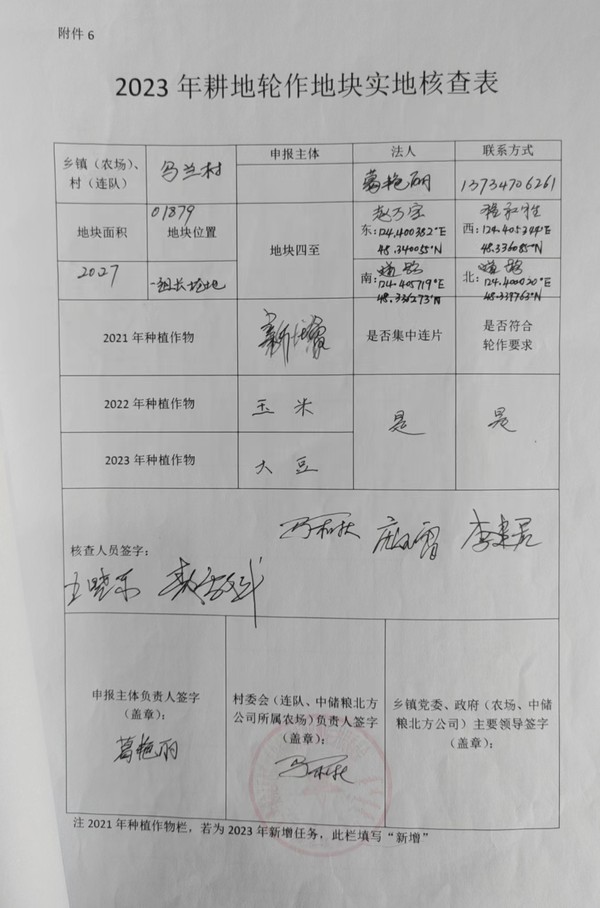 附件 6
2023 年耕地轮作地块实地核查表
乡镇（农场）、
村（连队）
马兰村
申报主体
法人
联系方式
葛艳丽
13734706261
地块面积
01879
地块位置
地块四至
赵万宝
东:124.400382°E
48.340085°N
西:124.405344°E
48.336085°N
2027
一组长垅地
道路
南:124.405719°E
48.336273°N
道路
北:124.400020°E
48.339763°N
2021 年种植作物
是否集中连片
是否符合
轮作要求
2022 年种植作物
玉 米
是
是
2023 年种植作物
大 豆
核查人员签字：
王晓东
申报主体负责人签字
（盖章）：
葛艳丽
村委会（连队、中储粮北方
公司所属农场）负责人签字
（盖章）：
乡镇党委、政府（农场、中储
粮北方公司）主要领导签字
（盖章）：
注 2021 年种植作物栏，若为 2023 年新增任务，此栏填写“新增”